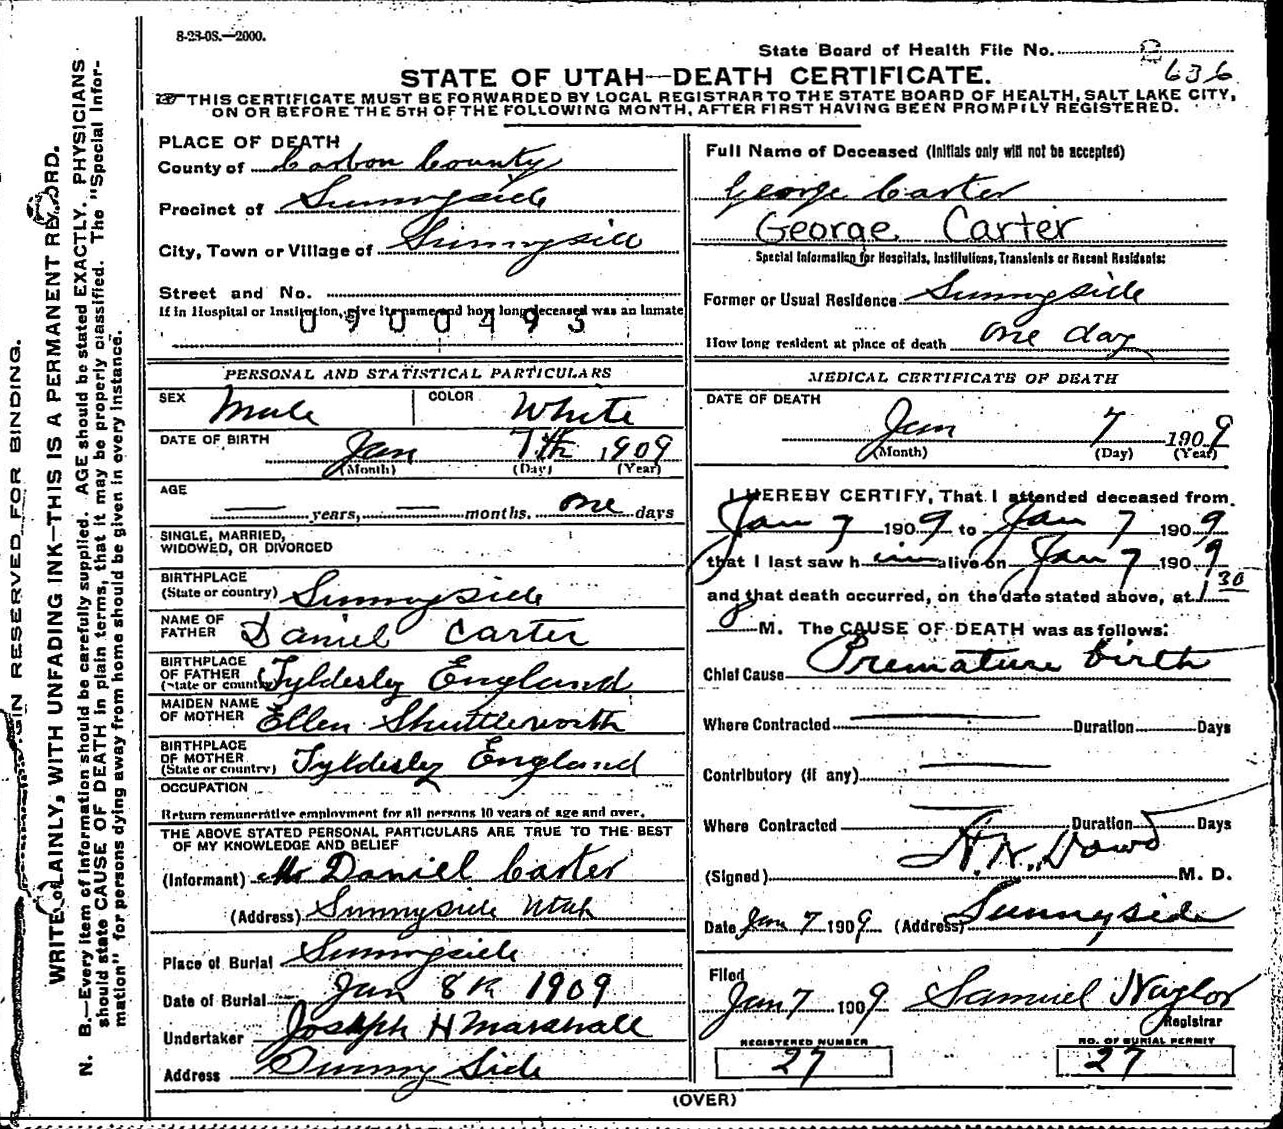 8-28-08.—2000.
State Board of Health File No. 636
STATE OF UTAH—DEATH CERTIFICATE.
THIS CERTIFICATE MUST BE FORWARDED BY LOCAL REGISTRAR TO THE STATE BOARD OF HEALTH, SALT LAKE CITY,
ON OR BEFORE THE 5TH OF THE FOLLOWING MONTH, AFTER FIRST HAVING BEEN PROMPTLY REGISTERED.
PLACE OF DEATH
County of Carbon County
Precinct of Sunnyside
City, Town or Village of Sunnyside
Street and No.
If in Hospital or Institution, give its name and how long deceased was an inmate
0900493
PERSONAL AND STATISTICAL PARTICULARS
SEX Male COLOR White
DATE OF BIRTH Jan 7th 1909
(Month) (Day) (Year)
AGE
— years, — months. one days
SINGLE, MARRIED,
WIDOWED, OR DIVORCED
BIRTHPLACE
(State or country) Sunnyside
NAME OF
FATHER Daniel Carter
BIRTHPLACE
OF FATHER
(State or country) Tyldesly England
MAIDEN NAME
OF MOTHER Ellen Shuttleworth
BIRTHPLACE
OF MOTHER
(State or country) Tyldesly England
OCCUPATION
Return remunerative employment for all persons 10 years of age and over.
THE ABOVE STATED PERSONAL PARTICULARS ARE TRUE TO THE BEST
OF MY KNOWLEDGE AND BELIEF
(Informant) Mr Daniel Carter
(Address) Sunnyside Utah
Place of Burial Sunnyside
Date of Burial Jan 8th 1909
Undertaker Joseph H Marshall
Address Sunny Side
Full Name of Deceased (Initials only will not be accepted)
George Carter
George Carter
Special Information for Hospitals, Institutions, Transients or Recent Residents:
Former or Usual Residence Sunnyside
How long resident at place of death one day
MEDICAL CERTIFICATE OF DEATH
DATE OF DEATH
Jan 7 1909
(Month) (Day) (Year)
I HEREBY CERTIFY, That I attended deceased from
Jan 7 1909 to Jan 7 1909
that I last saw h im alive on Jan 7 1909
and that death occurred, on the date stated above, at 1 30
P M. The CAUSE OF DEATH was as follows:
Chief Cause Premature birth
Where Contracted — Duration Days
Contributory (if any) —
Where Contracted — Duration Days
(Signed) Dowd M. D.
Date Jan 7 1909 (Address) Sunnyside
Filed
Jan 7 1909 Samuel Naylor
Registrar
REGISTERED NUMBER
27
NO. OF BURIAL PERMIT
27
(OVER)
IN RESERVED FOR BINDING.
WRITE PLAINLY, WITH UNFADING INK—THIS IS A PERMANENT RECORD.
N. B.—Every item of information should be carefully supplied. AGE should be stated EXACTLY. PHYSICIANS
should state CAUSE OF DEATH in plain terms, that it may be properly classified. The "Special Infor-
mation" for persons dying away from home should be given in every instance.